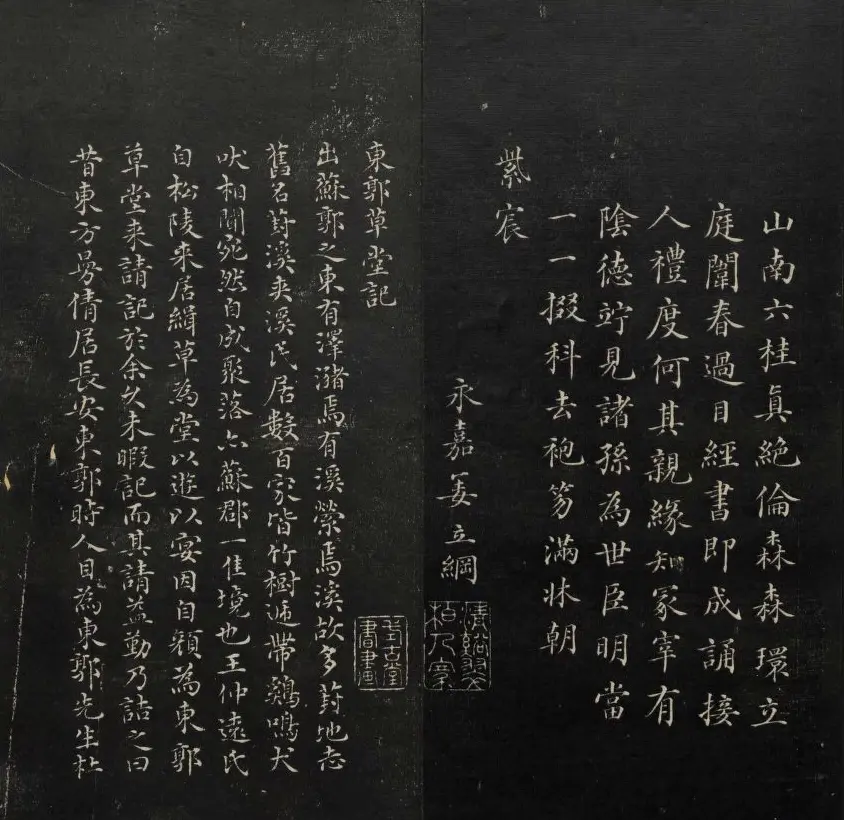 山南六桂真絶倫森森環立
庭闈春過目經書即成誦接
人禮度何其親緣知冢宰有
陰德竚見諸孫為世臣明當
一一掇科去袍笏滿牀朝
紫宸
永嘉姜立綱
東郭草堂記
出蘇郭之東有澤瀦焉有溪縈焉溪故多葑地志
舊名葑溪夾溪民居數百家皆竹樹遞帶鷄鳴犬
吠相聞宛然自成聚落亦蘇郡一佳境也王仲遠氏
自松陵來居緝草為堂以遊以宴因自顏為東郭
草堂来請記於余久未暇記而其請益勤乃詰之曰
昔東方曼倩居長安東郭時人目為東郭先生杜
書畫